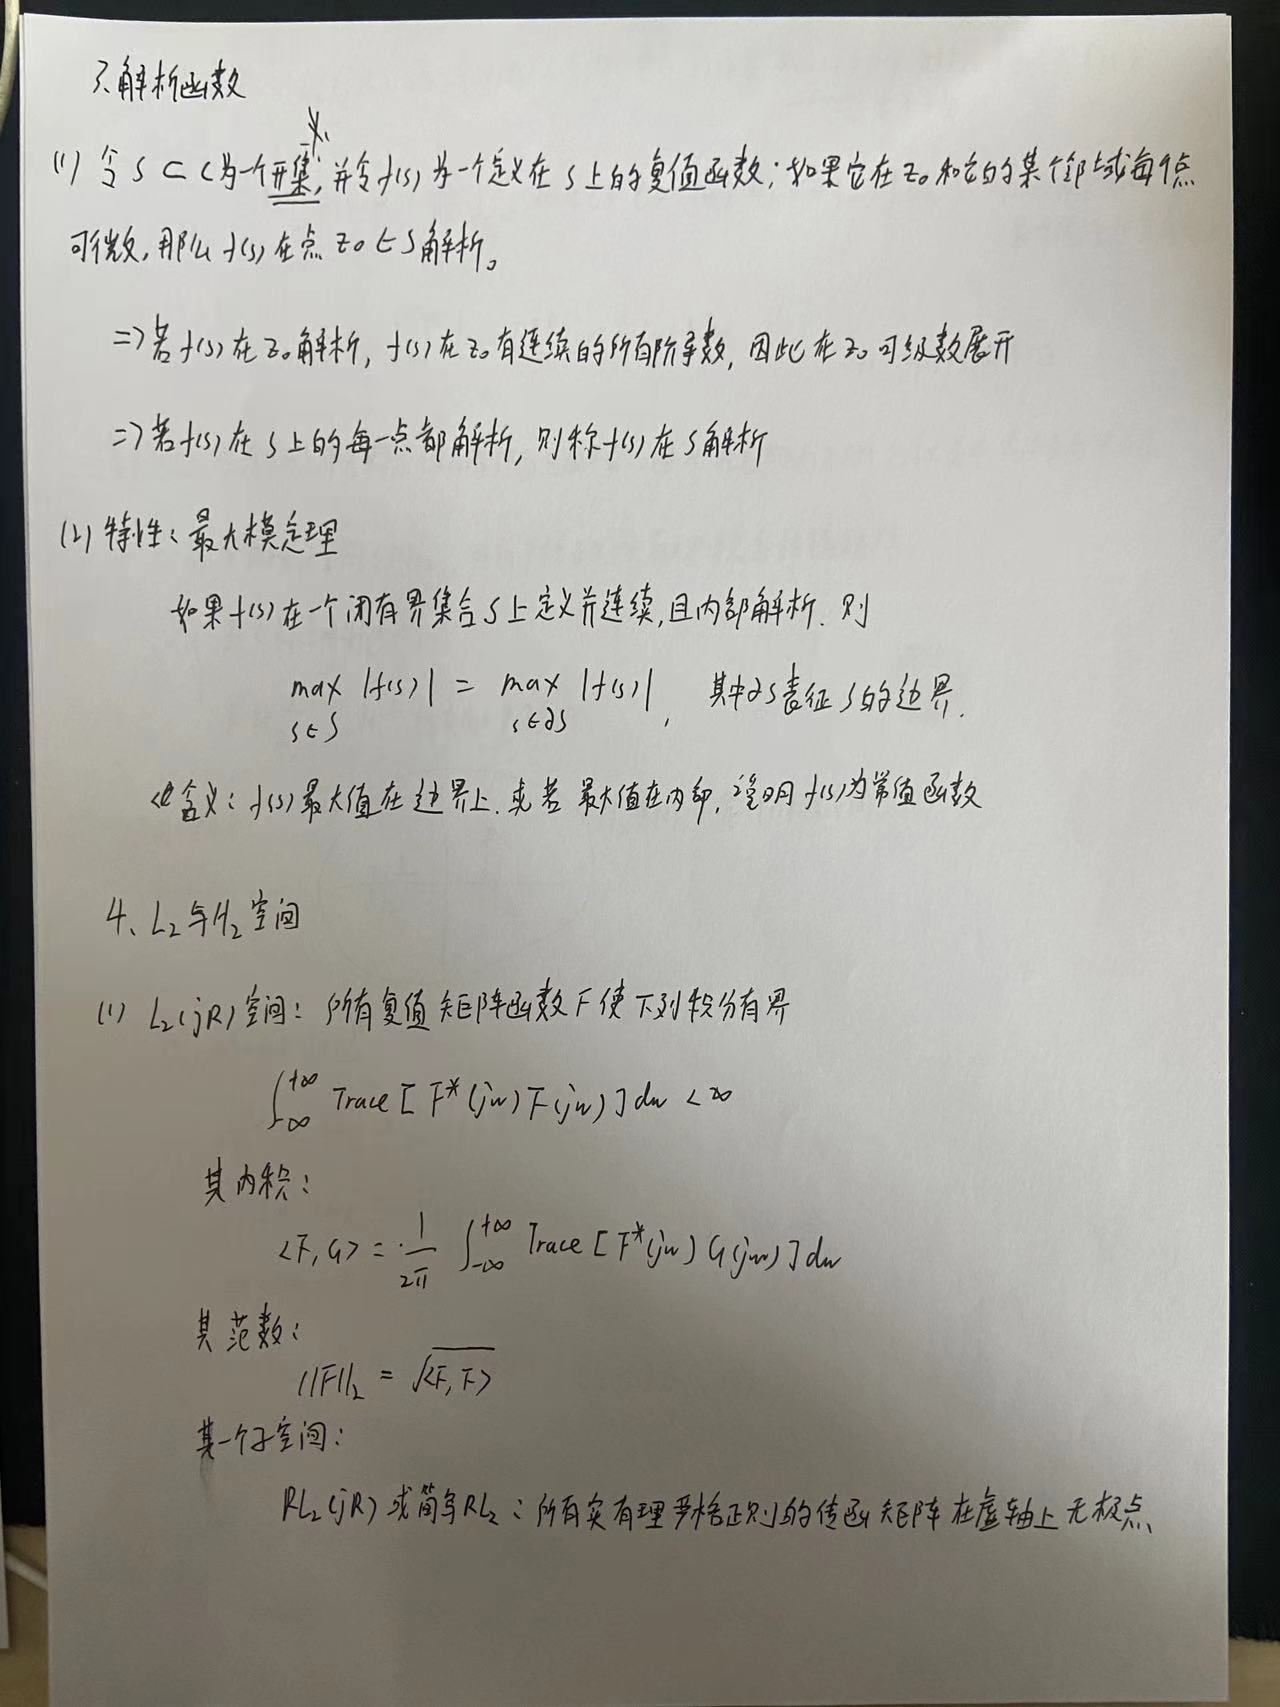 3、解析函数
(1) 令 S ⊂ C 为一个开集, 并令 f(s) 为一个定义在 S 上的复值函数; 如果它在 z₀ 和它的某个邻域每个点
可微, 那么 f(s) 在点 z₀ ∈ S 解析。
=> 若 f(s) 在 z₀ 解析, f(s) 在 z₀ 有连续的所有阶导数, 因此在 z₀ 可级数展开
=> 若 f(s) 在 S 上的每一点都解析, 则称 f(s) 在 S 解析
(2) 特性: 最大模定理
如果 f(s) 在一个闭有界集合 S 上定义并连续, 且内部解析. 则
max_{s∈S} |f(s)| = max_{s∈∂S} |f(s)|, 其中 ∂S 表征 S 的边界.
含义: f(s) 最大值在边界上. 或若最大值在内部, 说明 f(s) 为常值函数
4、L₂ 与 H₂ 空间
(1) L₂(jR) 空间: 所有复值矩阵函数 F 使下列积分有界
∫_{-∞}^{+∞} Trace [ F*(jw) F(jw) ] dw < ∞
其内积:
<F, G> = 1/2π ∫_{-∞}^{+∞} Trace [ F*(jw) G(jw) ] dw
其范数:
||F||₂ = √<F, F>
其一个子空间:
RL₂(jR) 或简写 RL₂: 所有实有理严格正则的传函矩阵在虚轴上无极点